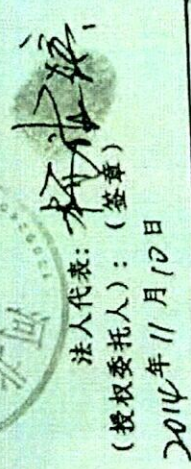 法人代表：
（授权委托人）：（签章）
2014年11月10日